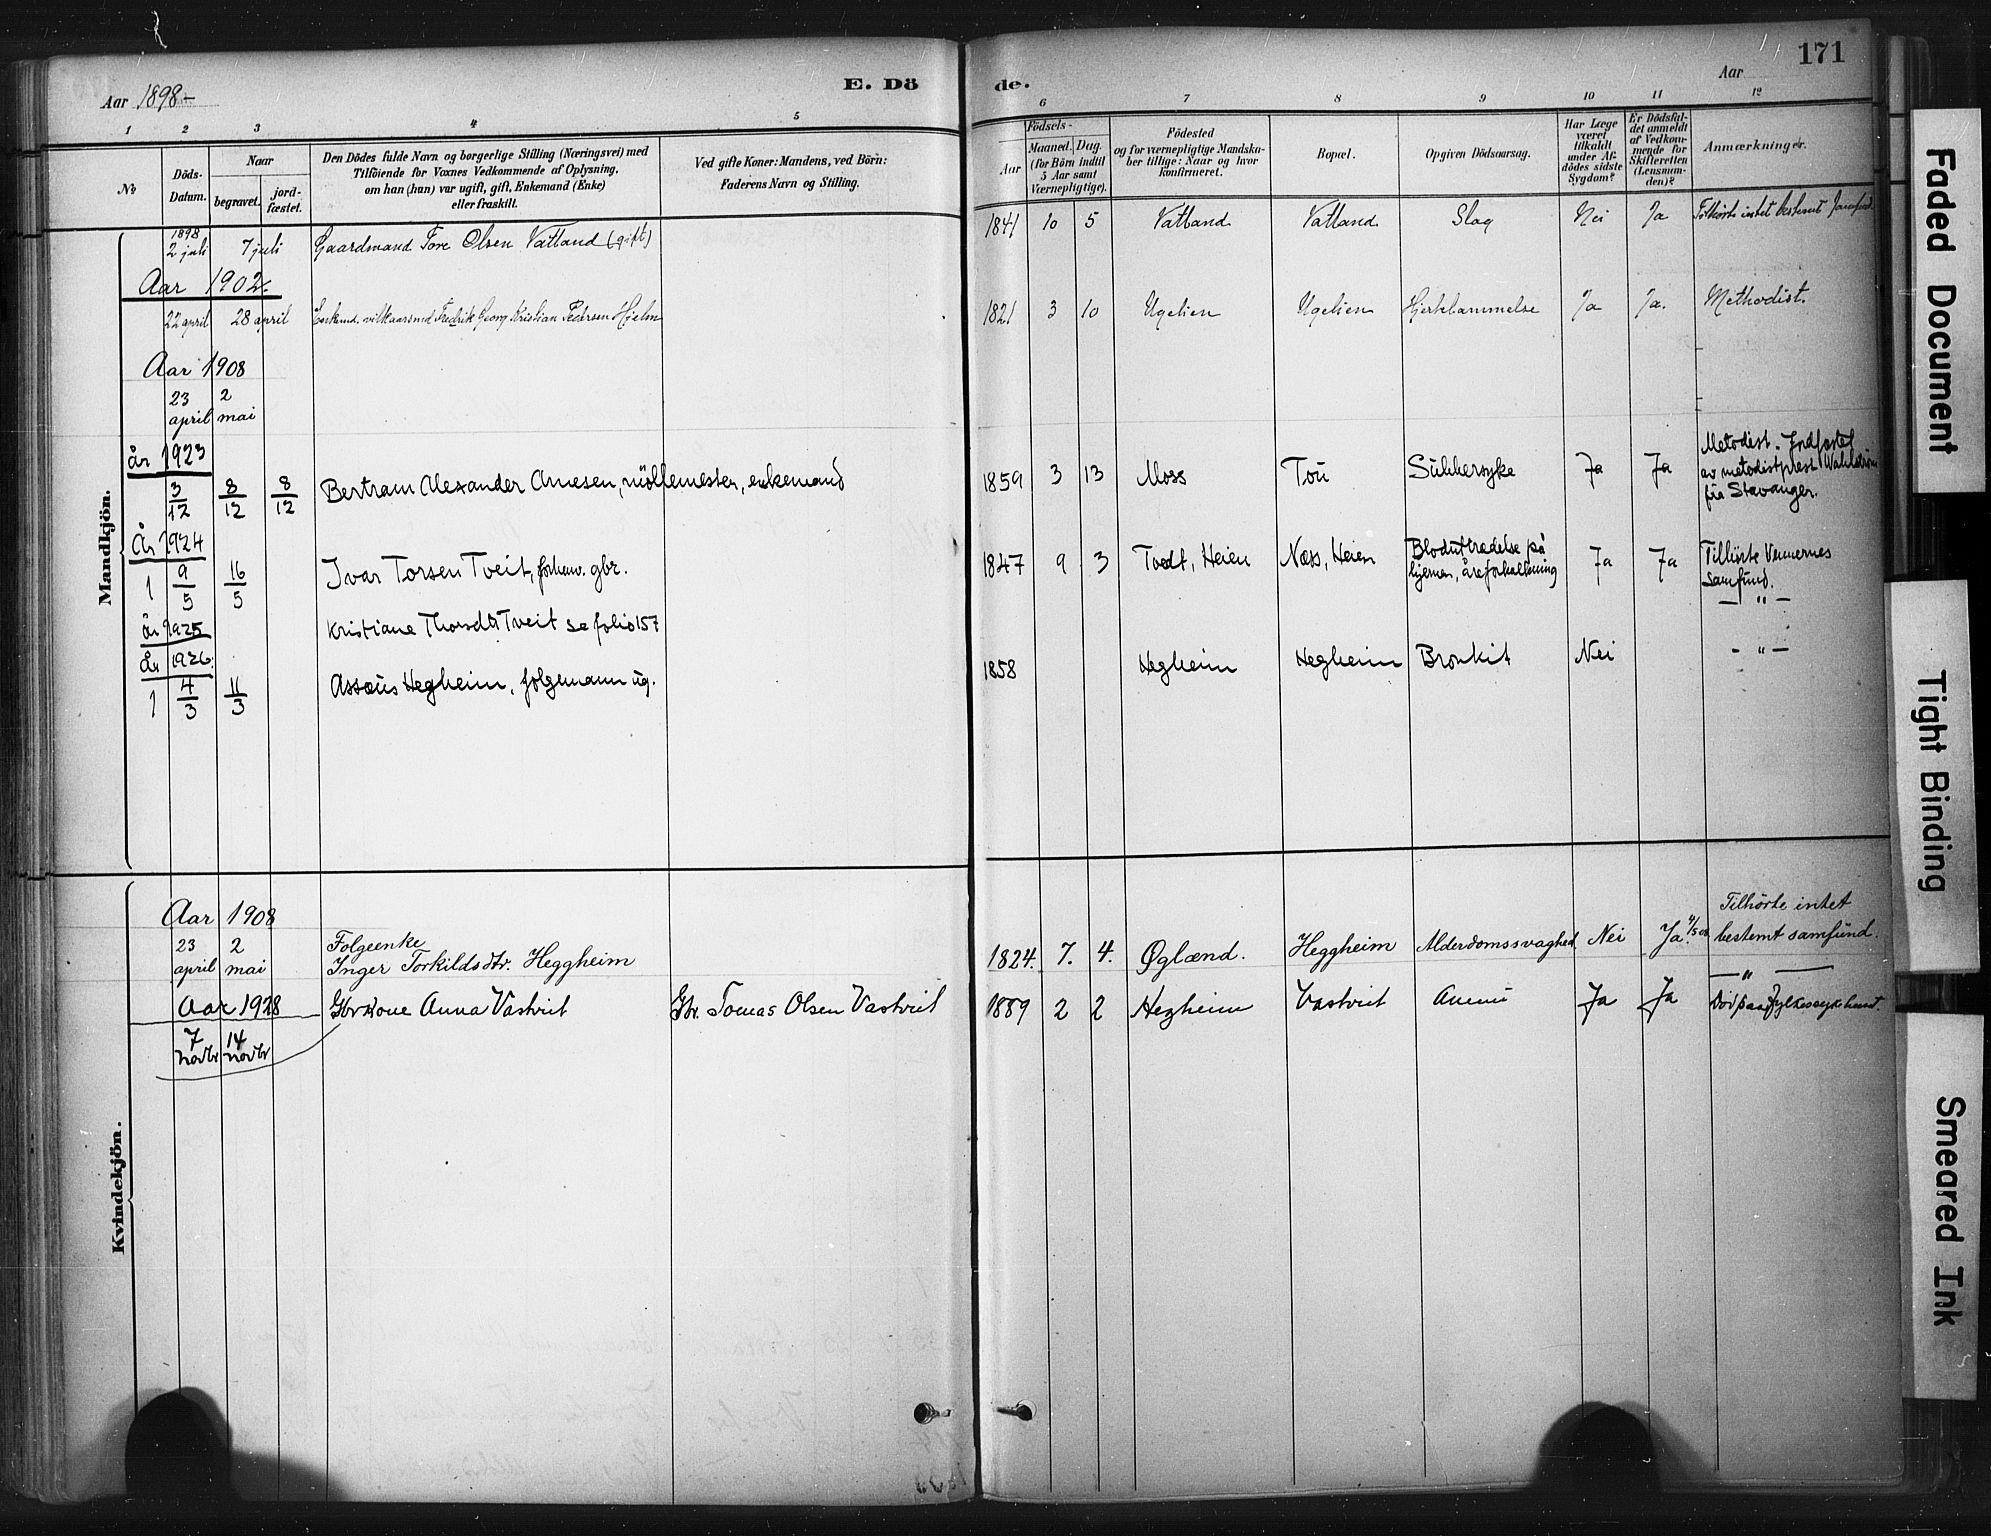 Aar 1898-
E. Dö
de.
Aar
171
1 2 3 4 5 6 7 8 9 10 11 12
No
Döds-
Datum.
Naar
begravet.
jord-
fæstet.
Den Dödes fulde Navn og borgerlige Stilling (Næringsvei) med
Tilföiende for Voxnes Vedkommende af Oplysning,
om han (hun) var ugift, gift, Enkemand (Enke)
eller fraskilt.
Ved gifte Koner: Mandens, ved Börn:
Faderens Navn og Stilling.
Födsels-
Aar
Maaned. Dag.
(for Börn indtil
5 Aar samt
Værnepligtige).
Födested
og for værnepligtige Mandska-
ber tillige: Naar og hvor
konfirmeret.
Bopæl.
Opgiven Dödsaarsag.
Har Læge
været
tilkaldt
under Af-
dödes sidste
Sygdom?
Er Dödsfal-
det anmeldt
af Vedkom-
mende for
Skifteretten
(Lensman-
den)?
Anmærkninger.
Mandkjön.
1898
2 juli 7 juli Gaardmand Tore Olsen Vatland (gift) 1841 10 5 Vatland Vatland Slag Nei Ja Tilhörte intet bestemt samfund
Aar 1902.
22 april 28 april Enkemd. vilkaarsmd Fredrik Georg Kristian Pedersen Hjelm 1821 3 10 Ugelien Ugelien Hjertelammelse Ja Ja. Methodist.
Aar 1908
23 2
april mai
år 1923
3/12 8/12 8/12 Bertram Alexander Arnesen, möllemester, enkemand 1859 3 13 Moss Tou Sukkersyke Ja Ja Metodist. Jordfæstet
av metodistprest Wahlström
fra Stavanger.
År 1924
1 9/5 16/5 Ivar Torsen Tveit, forhenv. gbr. 1847 9 3 Tvedt, Heien Næs, Heien Blodutträdelse på
hjernen, åreforkalkning Ja Ja Tilhörte Vennernes
samfund.
år 1925
Kristiane Thorsdtr Tveit se folio 157 — " —
År 1926.
1 4/3 11/3 Assæus Hegheim, folgemann ug. 1858 Hegheim Hegheim Bronkit Nei - " -
Kvindekjön.
Aar 1908
23 2
april mai
Folgeenke
Inger Torkildsdtr. Heggheim 1824. 7. 4. Øglænd. Heggheim Alderdomssvaghed Nei Ja. 4/5 08 Tilhörte intet
bestemt samfund.
— " —
Aar 1928
7 14
novbr novbr
Gbrkone Anna Vastveit Gbr. Tomas Olsen Vastveit 1889 2 2 Hegheim Vastveit Anemi Ja Ja Död paa Fylkessykehuset.
Faded Document
Tight Binding
Smeared Ink